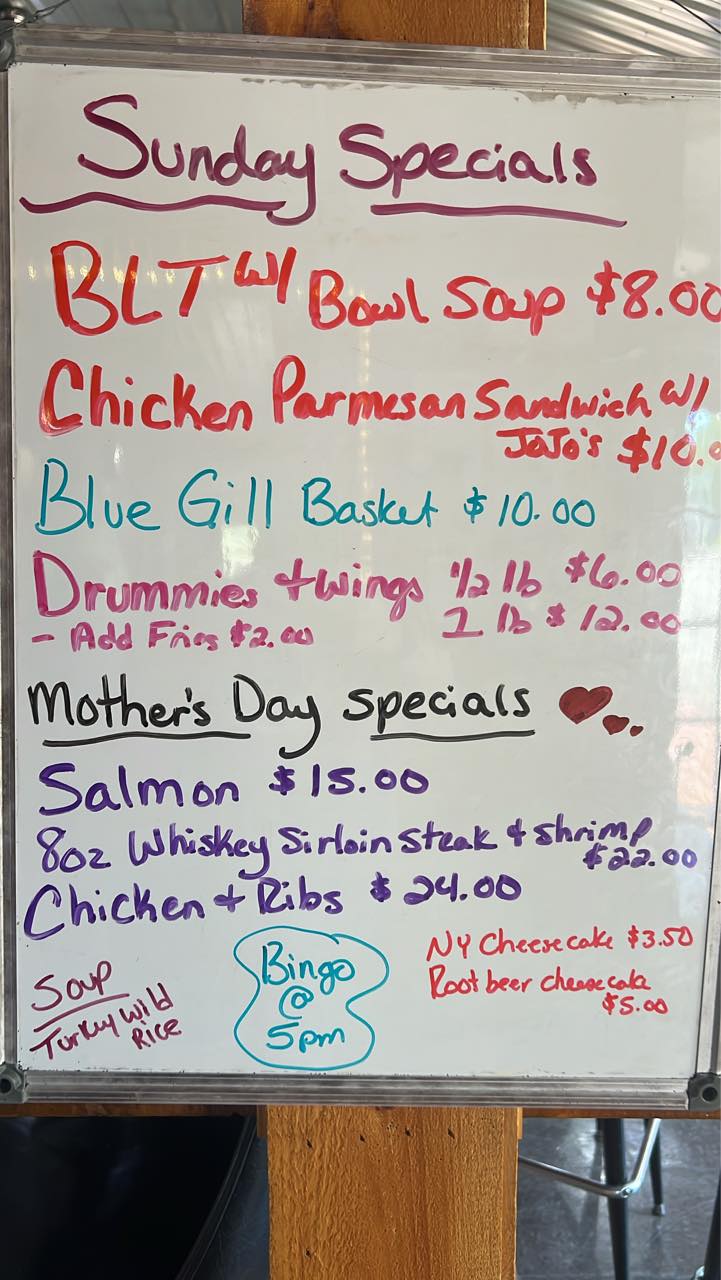 Sunday Specials
BLT w/ Bowl Soup $8.00
Chicken Parmesan Sandwich w/
JoJo's $10.0
Blue Gill Basket $10.00
Drummies + wings 1/2 lb $6.00
- Add Fries $2.00 1 lb $12.00
Mother's Day specials
Salmon $15.00
8oz Whiskey Sirloin Steak + shrimp
$22.00
Chicken + Ribs $24.00
NY Cheesecake $3.50
Root beer cheesecake
$5.00
Soup
Turkey Wild
Rice
Bingo
@
5pm